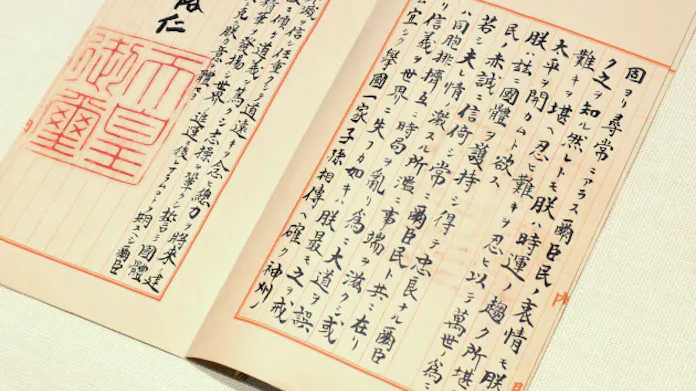 固ヨリ尋常ニアラス爾臣民ノ衷情モ朕
ク之ヲ知ル然レトモ朕ハ時運ノ趨ク所堪
難キヲ堪ヘ忍ヒ難キヲ忍ヒ以テ萬世ノ爲ニ
太平ヲ開カムト欲ス
朕ハ茲ニ國體ヲ護持シ得テ忠良ナル爾臣
民ノ赤誠ニ信倚シ常ニ爾臣民ト共ニ在リ
若シ夫レ情ノ激スル所濫ニ事端ヲ滋クシ或
ハ同胞排擠互ニ時局ヲ亂リ爲ニ大道ヲ誤
リ信義ヲ世界ニ失フカ如キハ朕最モ之ヲ戒
ム宜シク擧國一家子孫相傳ヘ確ク神州ノ
滅ヲ信シ任重クシテ道遠キヲ念ヒ總力ヲ將來ノ建
ニ傾ケ道義ヲ篤クシ志操ヲ鞏クシ誓テ國體
精華ヲ發揚シ世界ノ進運ニ後レサラムコトヲ期スヘシ爾臣
克ク朕カ意ヲ體セヨ
裕仁
天皇
御璽